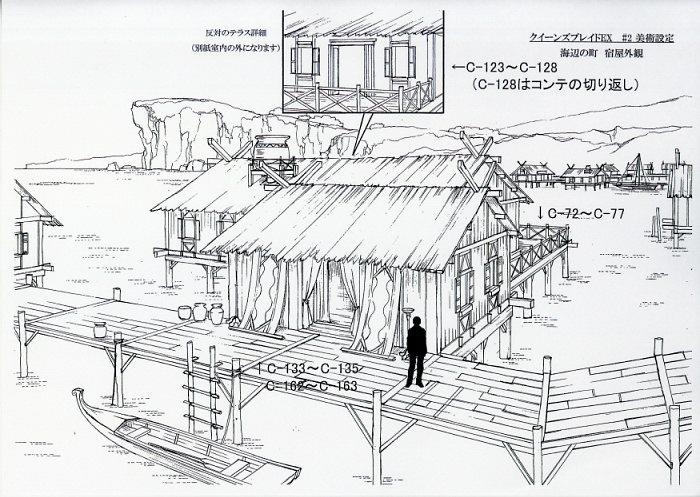 反対のテラス詳細
(別紙室内の外になります)
クイーンズブレイドEX #2 美術設定
海辺の町 宿屋外観
←C-123～C-128
(C-128はコンテの切り返し)
↓C-72～C-77
↑C-133～C-135
C-162～C-163